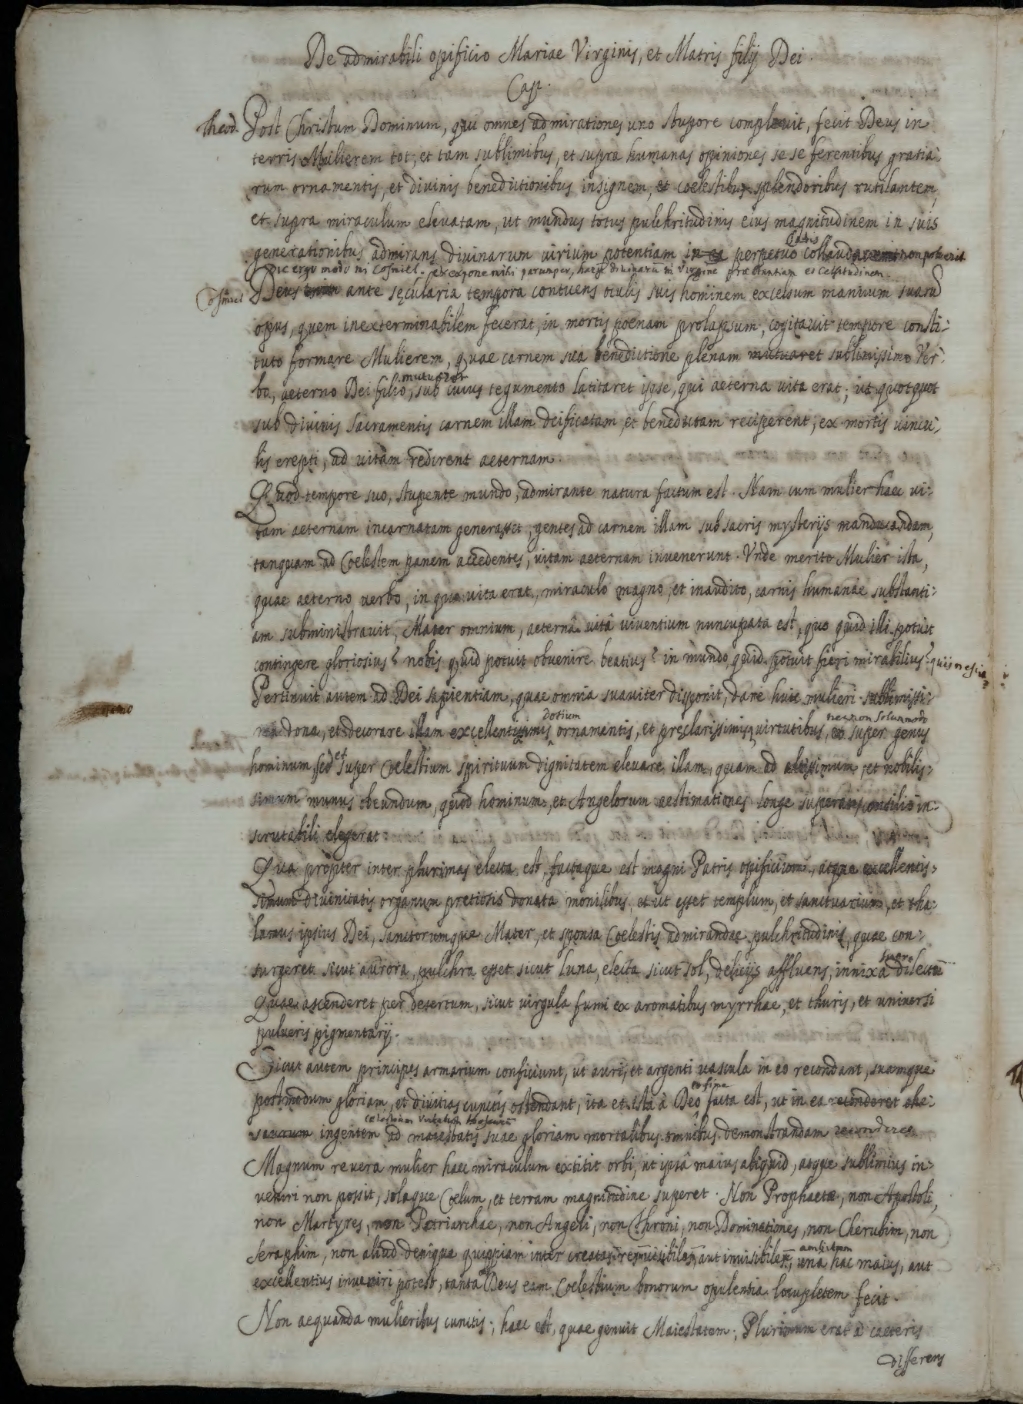 De admirabili opificio Mariae Virginis, et Matris filij Dei.
Cap.
Theod. Post Christum Dominum, qui omnes admirationes uno stupore complevit, fecit Deus in
terris Mulierem tot, et tam sublimibus, et supra humanas opiniones se se ferentibus gratia-
rum ornamentis, et divinis benedictionibus insignem, et coelestibus splendoribus rutilantem,
et supra miraculum elevatam, ut mundus totus pulchritudinis eius magnitudinem in suis
generationibus admirans divinarum virium potentiam perpetuo non poterit.
Dic ergo mihi in Virgine praestantiam et celsitudinem.
Deus ante secularia tempora contuens oculis suis hominem excelsum manuum suarum
opus, quem inexterminabilem fecerat, in mortis poenam prolapsum, cogitavit tempore consti-
tuto formare Mulierem, quae carnem sua benedictione plenam mutuaret sublimissimo Ver-
mutuaret
bo, aeterno Dei filio, sub cuius tegumento latitaret ipse, qui aeterna vita erat; ut quotquot
sub divinis Sacramentis carnem illam deificatam, et benedictam reciperent, ex mortis vincu-
lis erepti, ad vitam redirent aeternam.
Quod tempore suo, stupente mundo, admirante natura factum est. Nam cum mulier haec vi-
tam aeternam incarnatam generasset, gentes ad carnem illam sub sacris mysterijs manducandam,
tanquam ad Coelestem panem accedentes, vitam aeternam invenerunt. Unde merito Mulier ista,
quae aeterno verbo, in quo vita erat, miraculo magno, et inaudito, carnis humanae substanti-
am subministravit, Mater omnium, aeterna vita viventium nuncupata est, quo quid illi potuit
contingere gloriosius? nobis quid potuit obvenire beatius? in mundo quid potuit fieri mirabilius?
Pertinuit autem ad Dei sapientiam, quae omnia suaviter disponit, dare huic mulieri sublimissi-
ma dona, et decorare illam excellentissimis ornamentis, et preclarissimis virtutibus, super genus
necnon solummodo
hominum sed et super Coelestium spirituum dignitatem elevare illam, quam ad altissimum, et nobilis-
simum munus obeundum, quod hominum, et Angelorum aestimationes longe superat, consilio in-
scrutabili elegerat.
Qua propter inter plurimas electa est, factaque est magni Patris opificium, atque excellentis-
simum divinitatis organum pretiosis donata monilibus et ut esset templum, et sanctuarium, et tha-
lamus ipsius Dei, sanctorumque Mater, et sponsa Coelestis admirandae pulchritudinis, quae con-
surgeret sicut aurora, pulchra esset sicut luna, electa sicut sol, delicijs affluens, innixa dilectum
super
Quae ascenderet per desertum, sicut virgula fumi ex aromatibus myrrhae, et thuris, et universi
pulveris pigmentarij.
Sicut autem principes armarium conficiunt, ut auri, et argenti vascula in eo recondant, suamque
postmodum gloriam, et divitias cunctis ostendant, ita et ista à Deo facta est, ut in ea reconderet the-
saurum ingentem ad maiestatis suae gloriam mortalibus omnibus demonstrandam recondere
Magnum revera mulier haec miraculum extitit orbi, ut ipsa maius aliquid, atque sublimius in-
veniri non possit, solaque Coelum, et terram magnitudine superet. Non Prophaetae, non Apostoli,
non Martyres, non Patriarchae, non Angeli, non Throni, non Dominationes, non Cherubim, non
Seraphim, non aliud denique quippiam inter creatas res visibilem, aut invisibilem, una hac maius, aut
excellentius inveniri potest, tanta Deus eam Coelestium bonorum opulentia locupletem fecit.
Non aequanda mulieribus cunctis; haec est, quae genuit Maiestatem; Plurimum erat à caeteris
differens